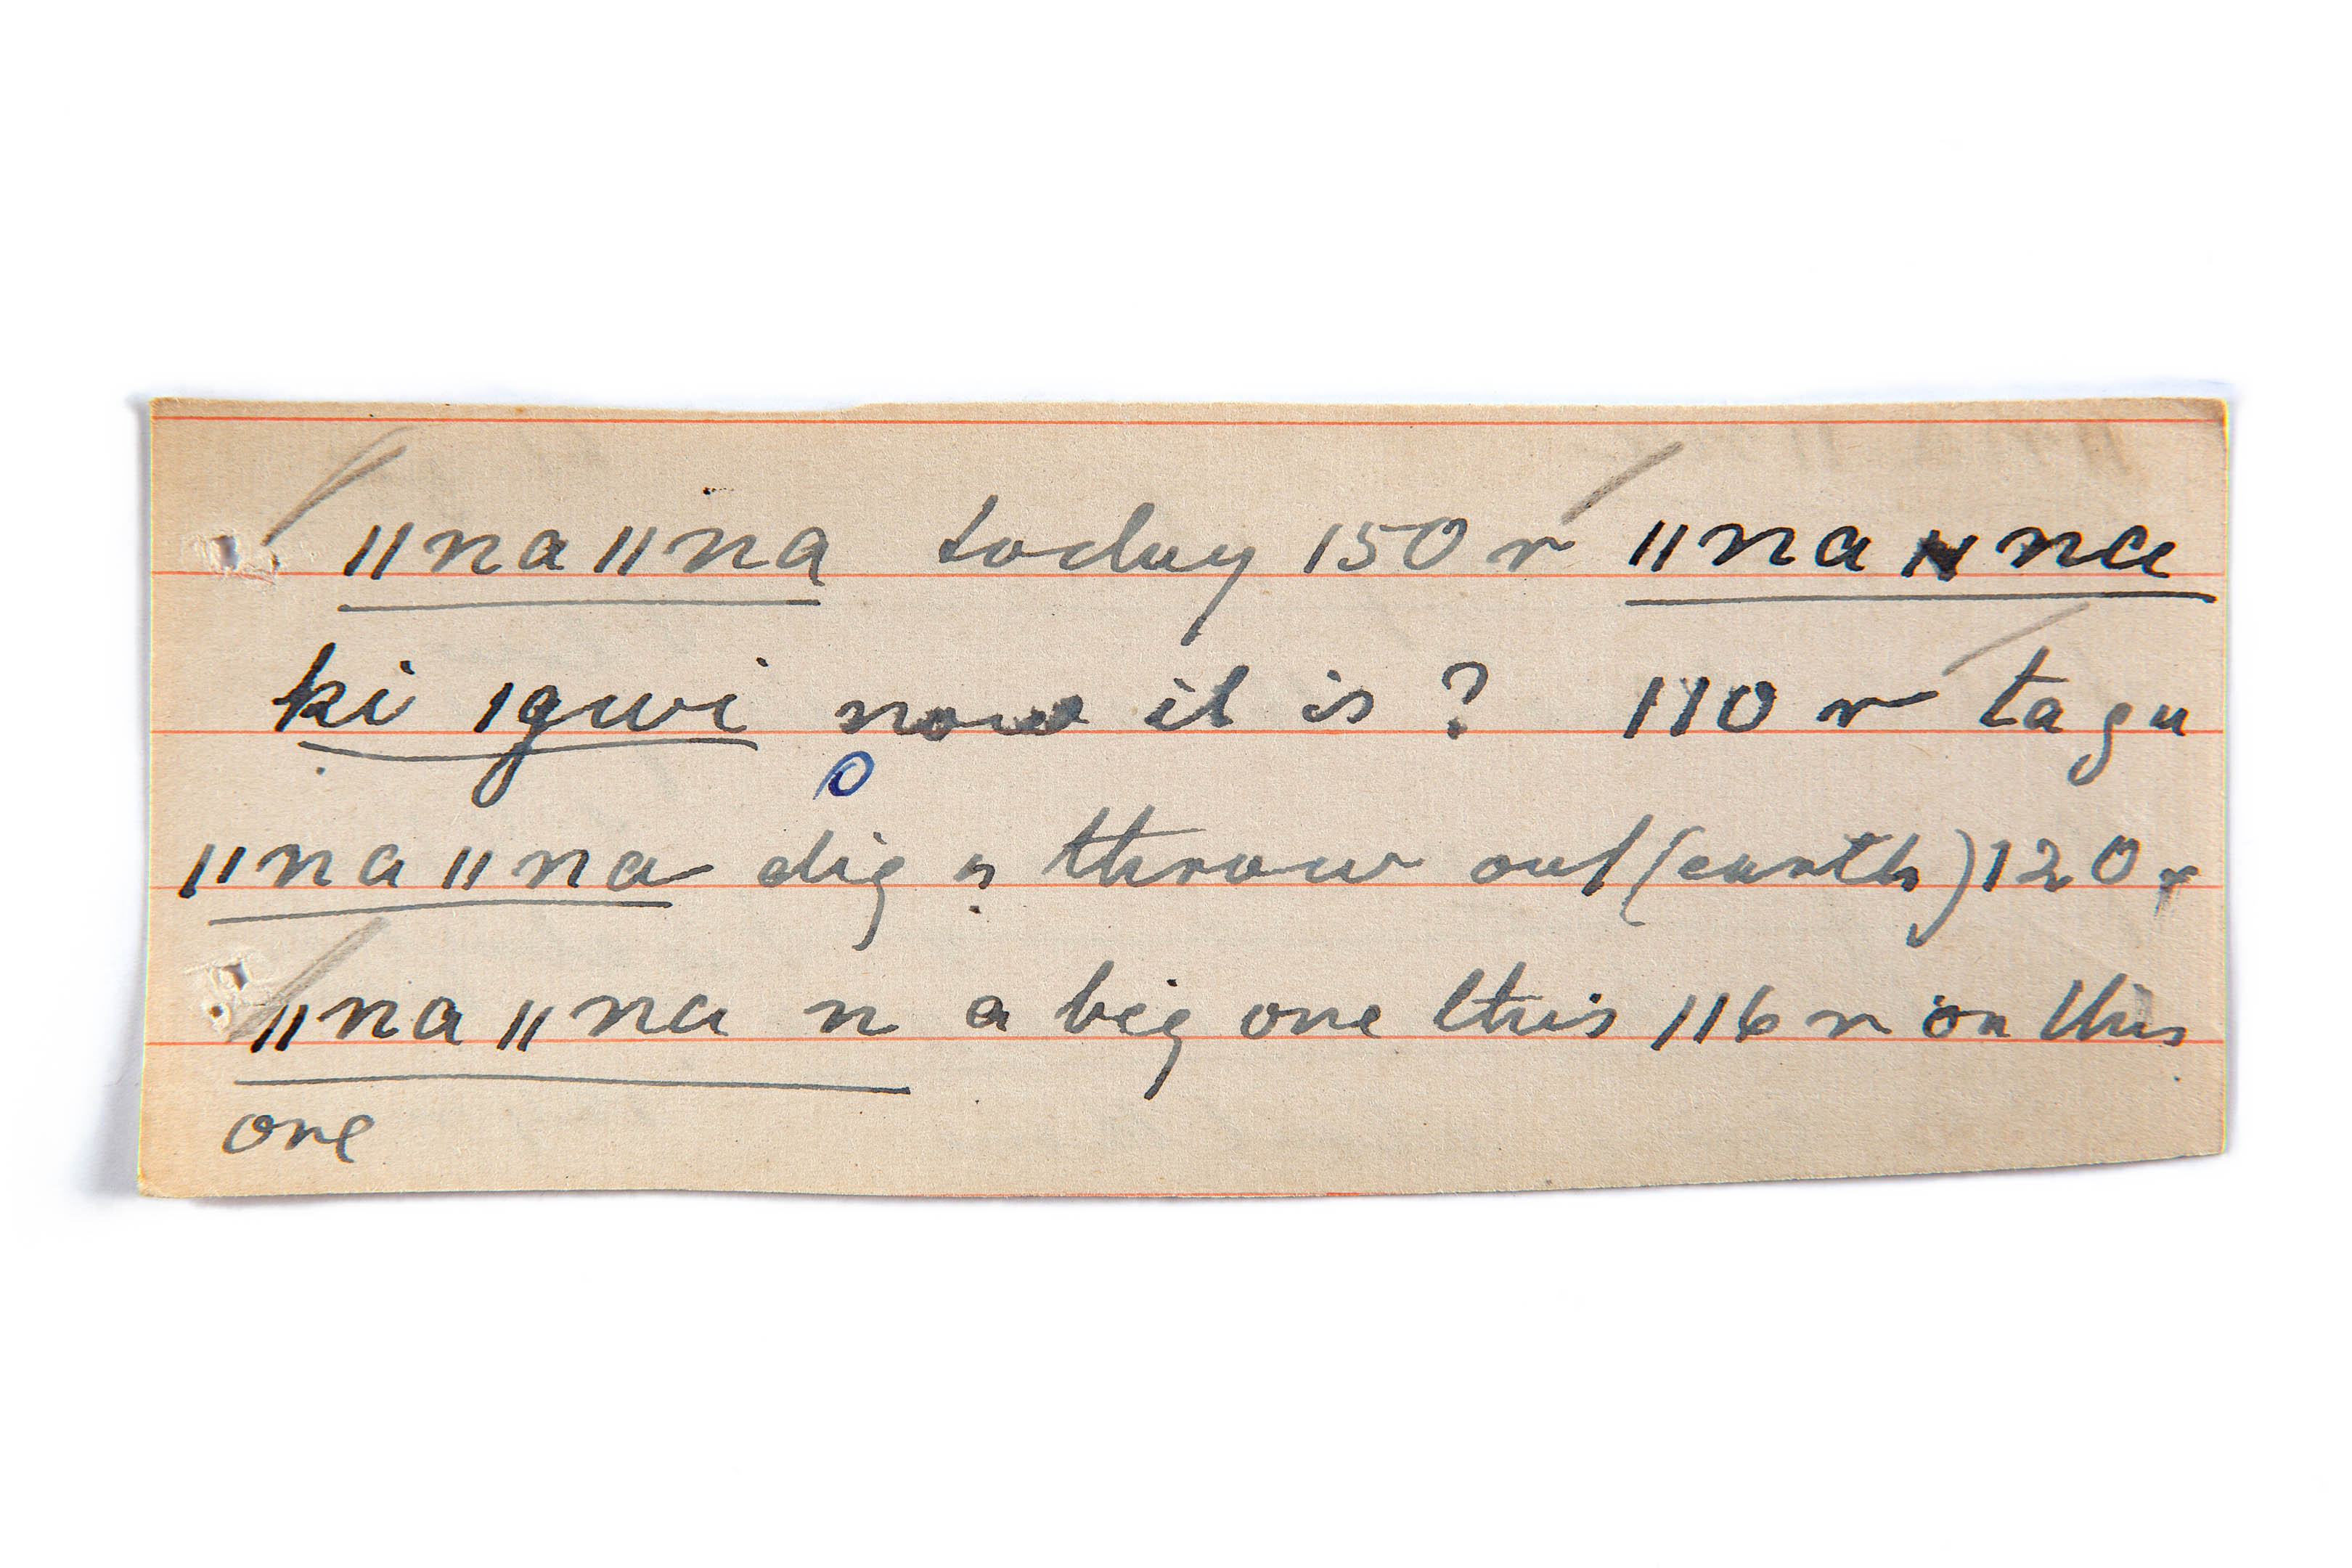 ǁnaǁna today 150 r ǁnaǁna
ki ǀgwi now it is? 110 r tagu
ǁnaǁna dig n throw out (earth) 120 r
ǁnaǁna n a big one this 116 r on this
one